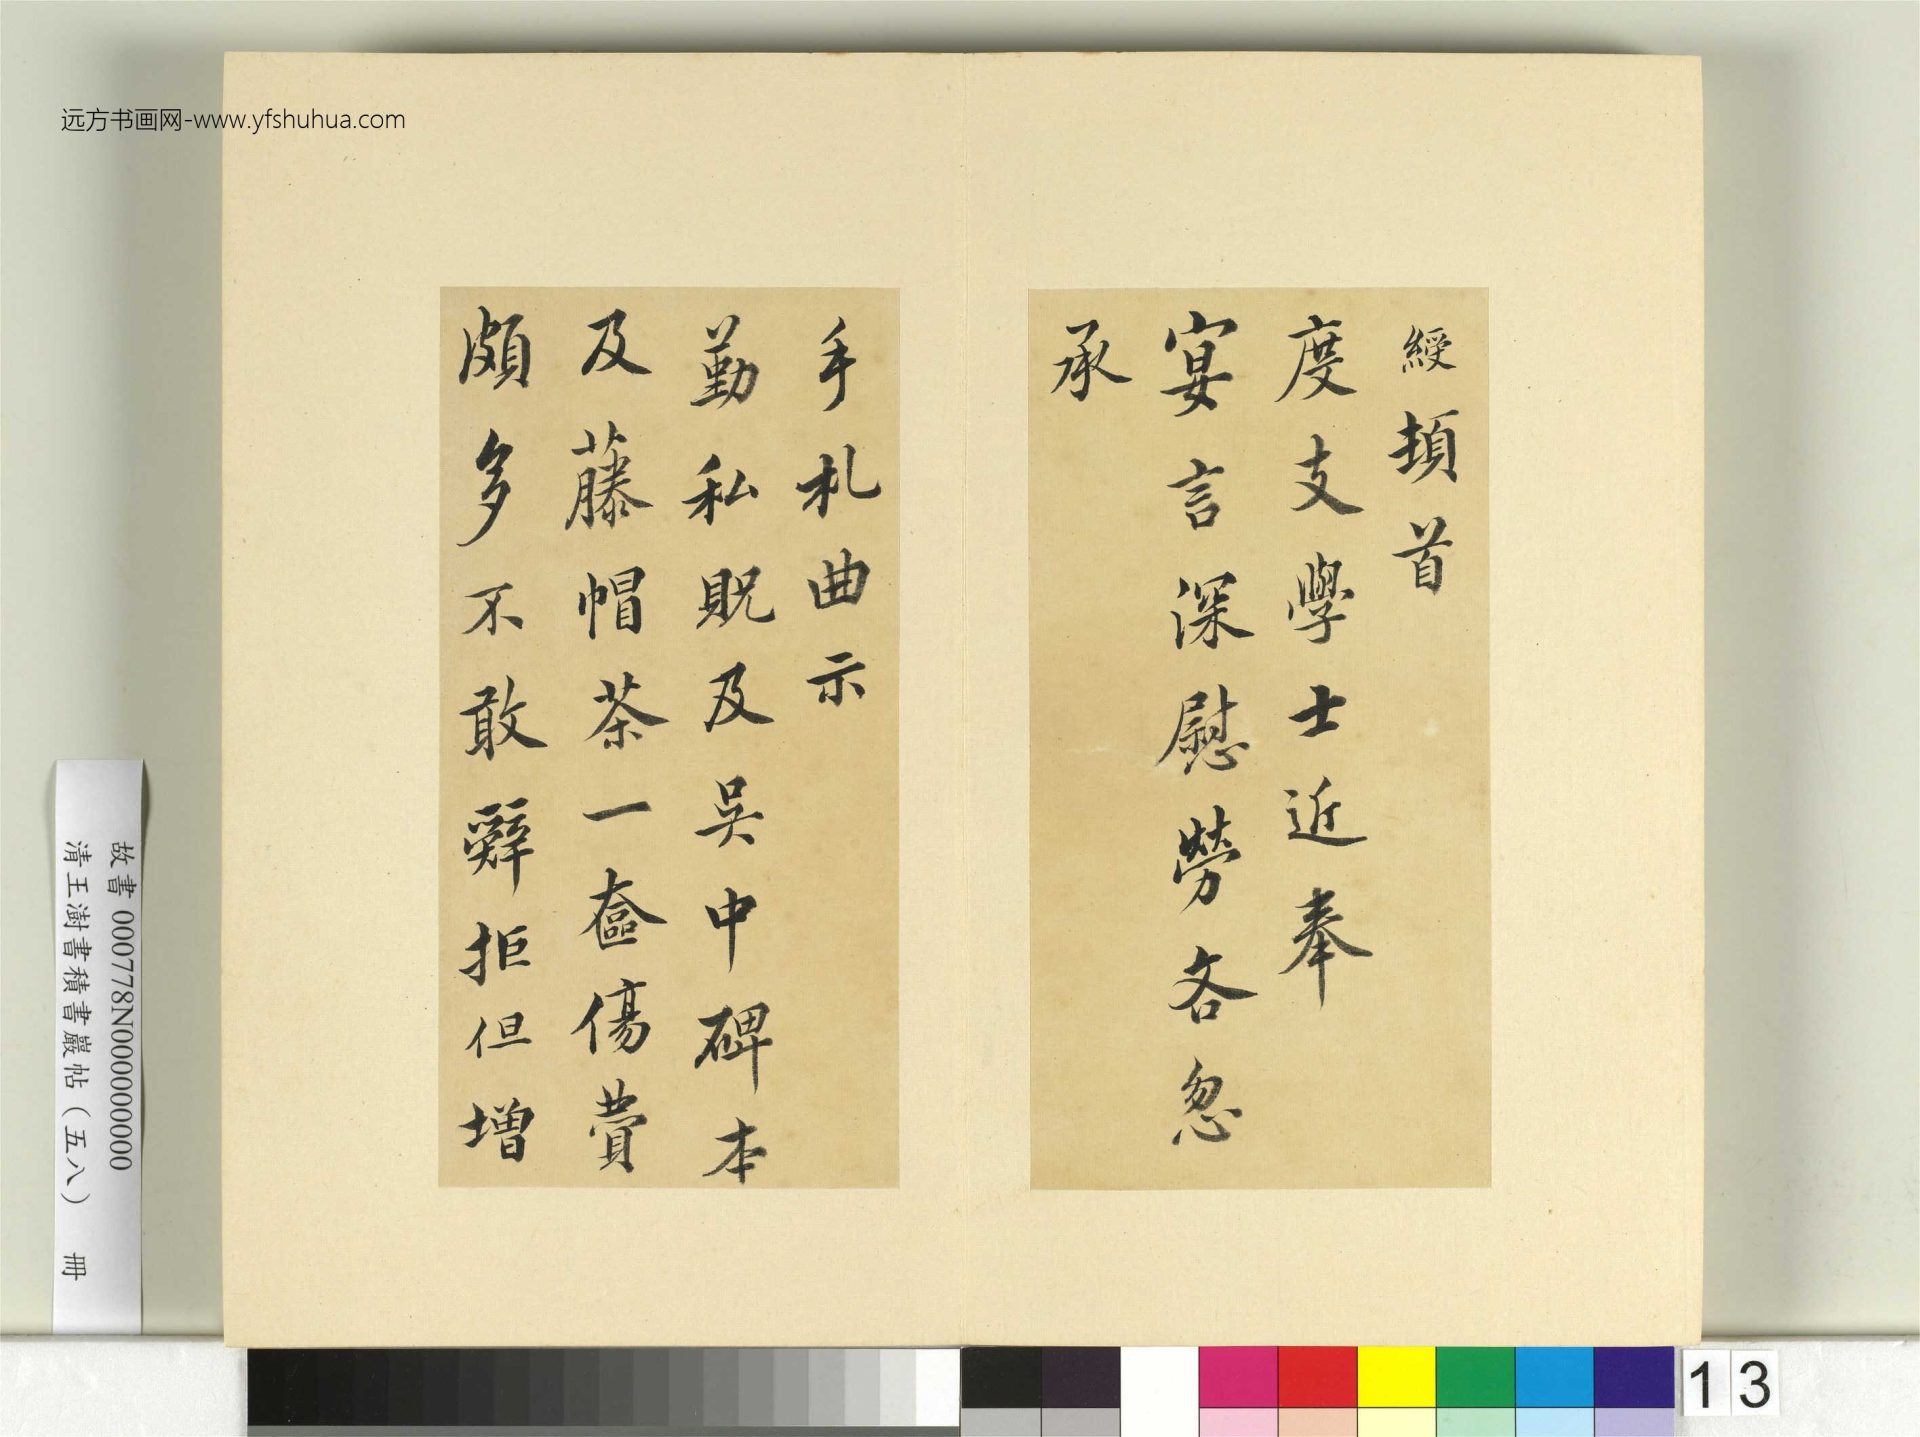 远方书画网-www.yfshuhua.com
綬頓首
度支學士近奉
宴言深慰勞吝忽
承
手札曲示
勤私貺及吳中碑本
及藤帽茶一奩傷費
頗多不敢辭拒但增
故書 000778N000000000
清王澍書積書巖帖（五八） 冊
13